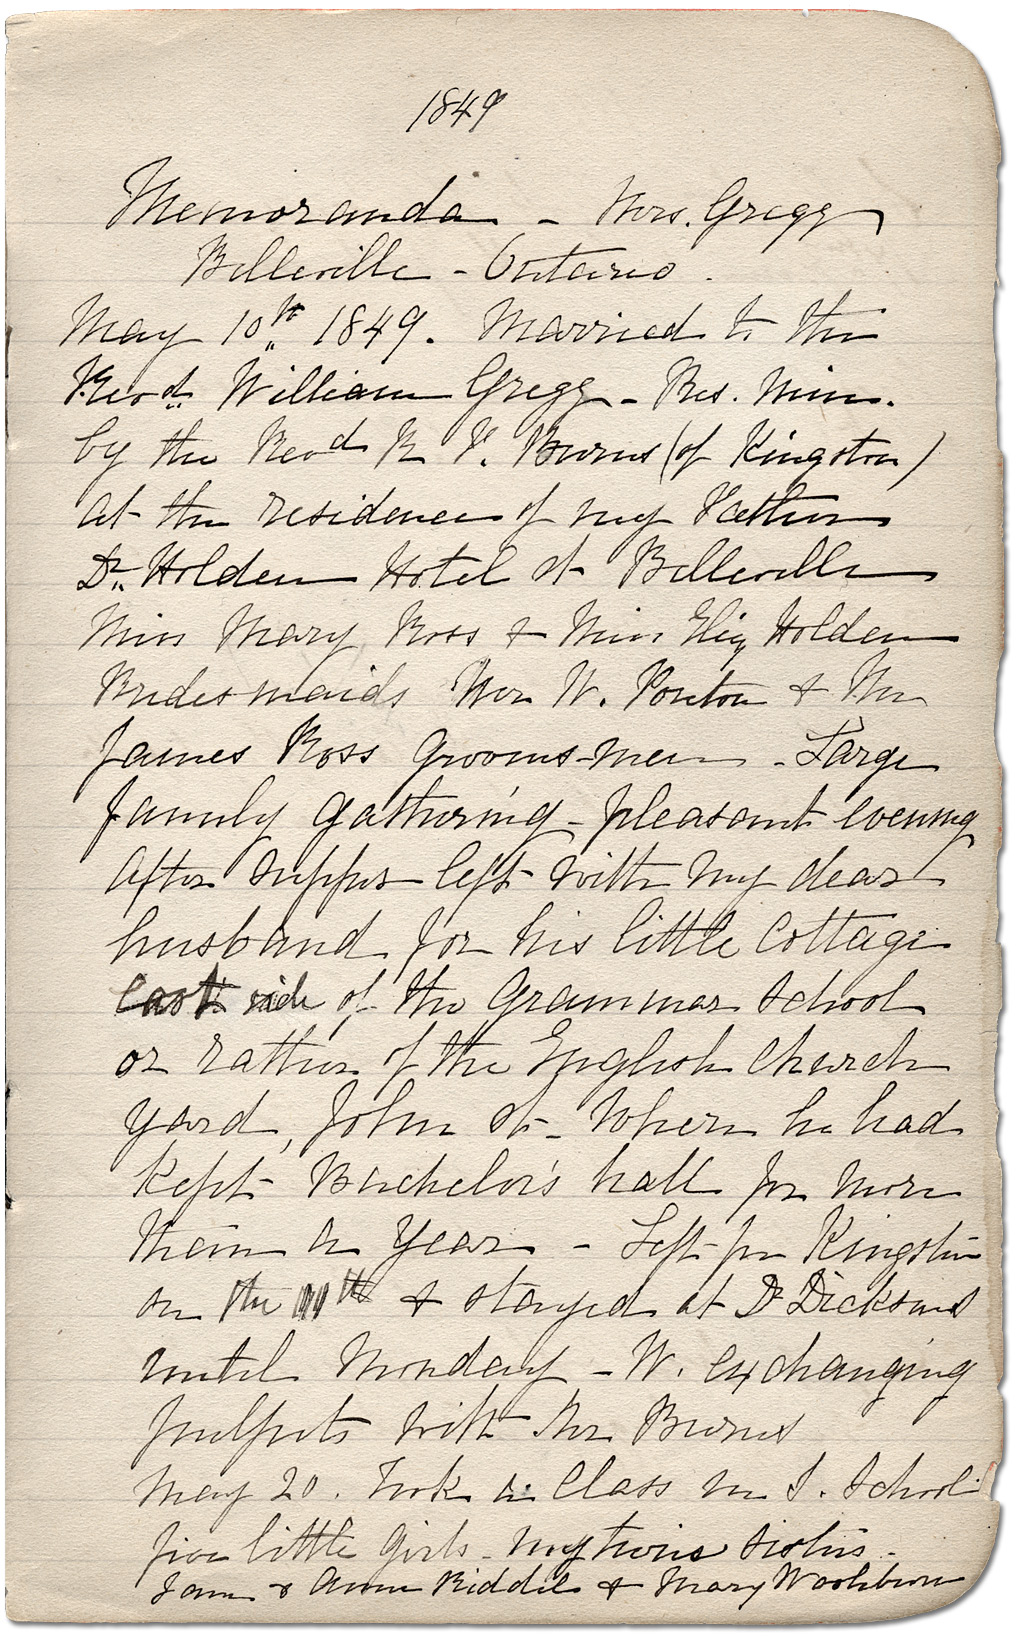 1849
Memoranda - Mrs. Gregg
Belleville - Ontario.
May 10th 1849. Married to the
Revd. William Gregg - Pres. Minr.
by the Revd R F. Burns (of Kingston)
at the residence of my Father
Dr. Holden Hotel St Belleville
Miss Mary Ross & Miss Eliz Holden
Bridesmaids Mr W. Ponton & Mr
James Ross Grooms-men - Large
family gathering - pleasant evening
After supper left with my dear
husband for his little cottage
east side of the Grammar School
or rather of the English Church
yard, John St - Where he had
kept Bachelor's hall for more
than a year - Left for Kingston
on the & stayed at Dr Dicksons
until Monday - W. exchanging
pulpits with Mr Burns
May 20. Took a Class in S. School
five little girls - my twin sisters -
Jane & Anne Riddel & Mary Washburn